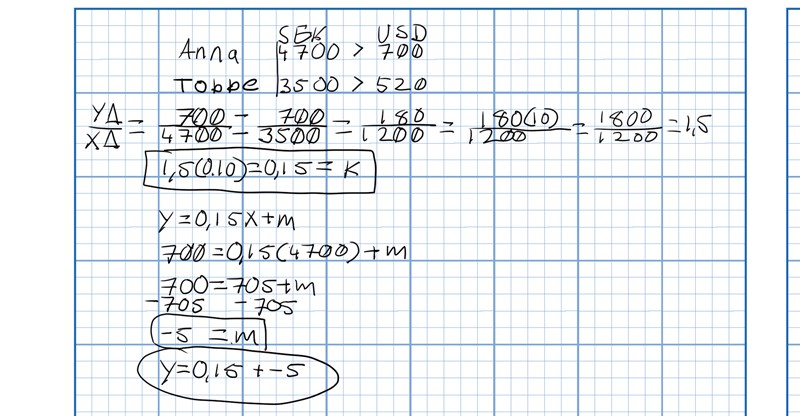 SEK USD
Anna 4700 > 700
Tobbe 3500 > 520
YΔ/XΔ = 700 - 700/4700 - 3500 = 180/1200 = 180(10)/1200 = 1800/1200 = 1,5
1,5(0.10)=0,15 = K
Y=0,15X+m
700=0,15(4700)+m
700=705+m
-705 -705
-5 =m
Y=0,15 + -5